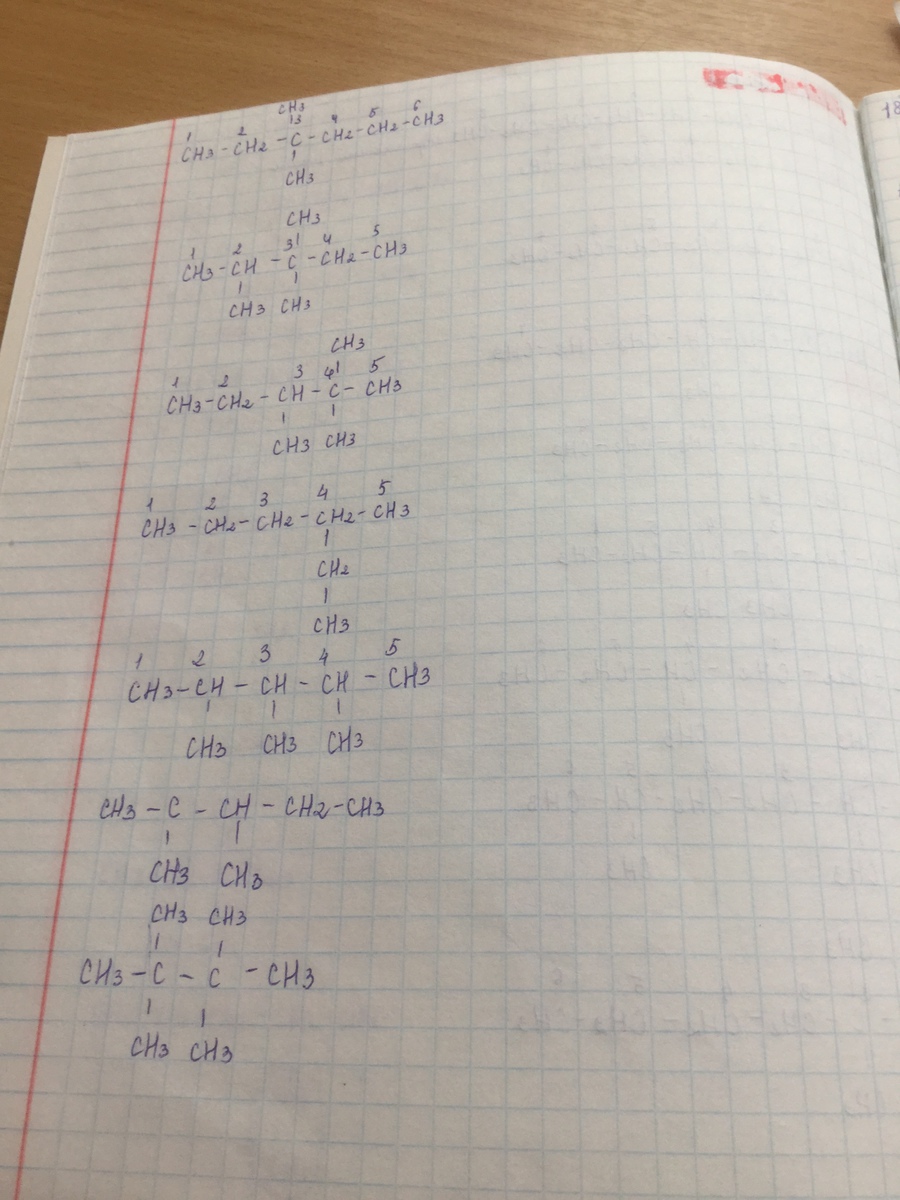 CH3
1 2 13 4 5 6
CH3 - CH2 - C - CH2 - CH2 - CH3
CH3
CH3
1 2 3 4 5
CH3 - CH - C - CH2 - CH3
CH3 CH3
CH3
1 2 3 4 5
CH3 - CH2 - CH - C - CH3
CH3 CH3
1 2 3 4 5
CH3 - CH2 - CH2 - CH2 - CH3
CH2
CH3
1 2 3 4 5
CH3 - CH - CH - CH - CH3
CH3 CH3 CH3
CH3 - C - CH - CH2 - CH3
CH3 CH3
CH3 CH3
CH3 - C - C - CH3
CH3 CH3
18